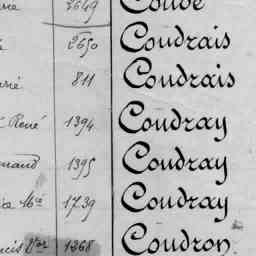 3649 Coude
2650 Coudrais
811 Coudrais
René 1394 Coudray
1395 Coudray
Mie 1739 Coudray
1268 Coudron